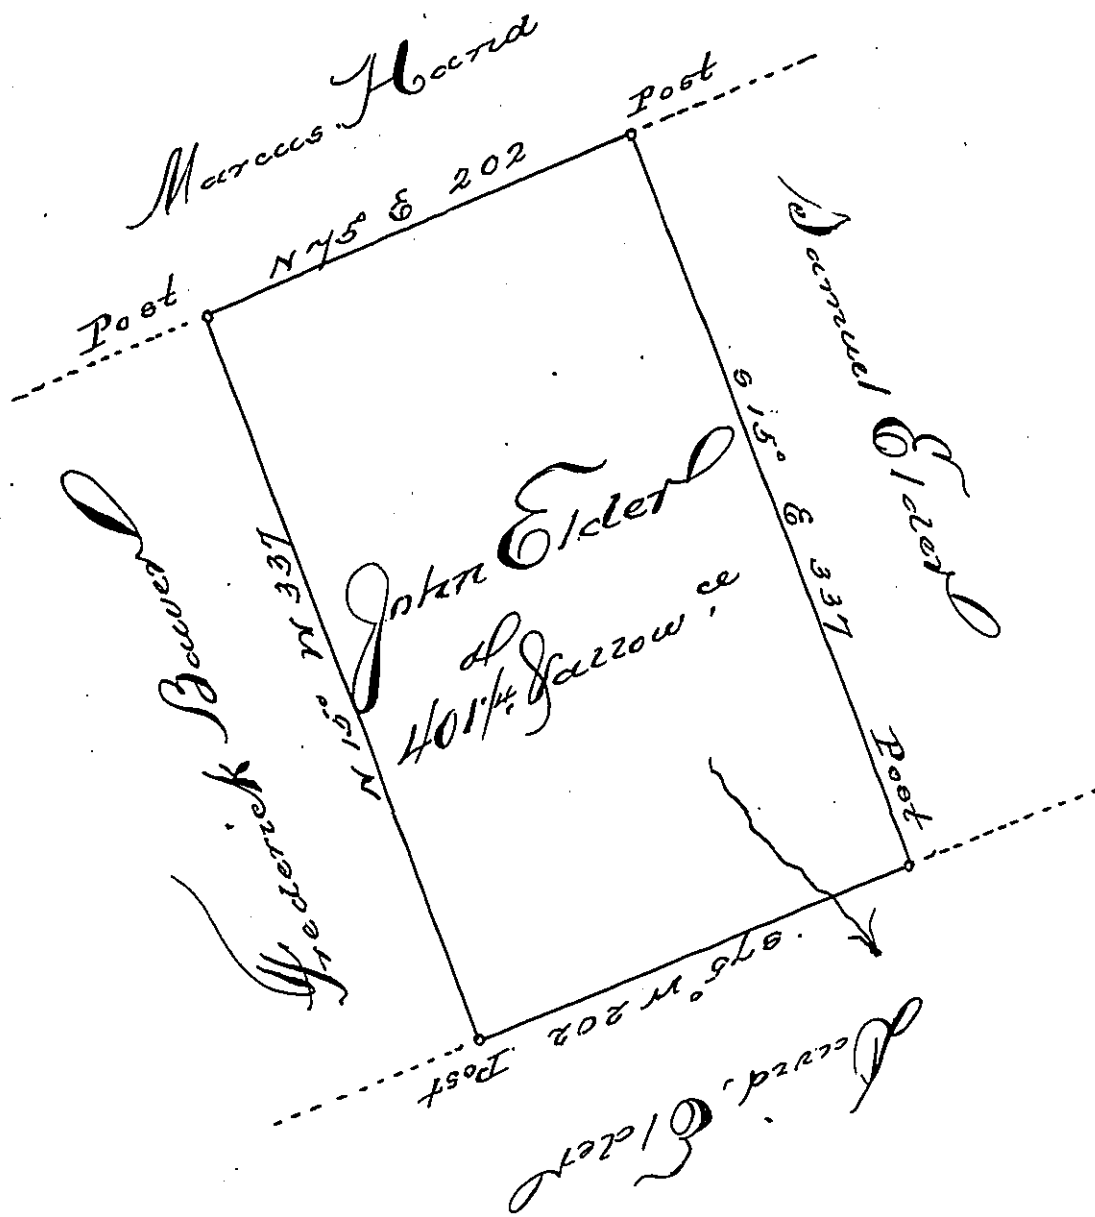 Marcus. Hand
Post
N 75° E 202
Post
Samuel Elder
S 15° E 337
Post
John Elder
401 A. & allow.ce
N 15° W 337
Frederick Bawer
S 75° W 202
Post
David. Elder